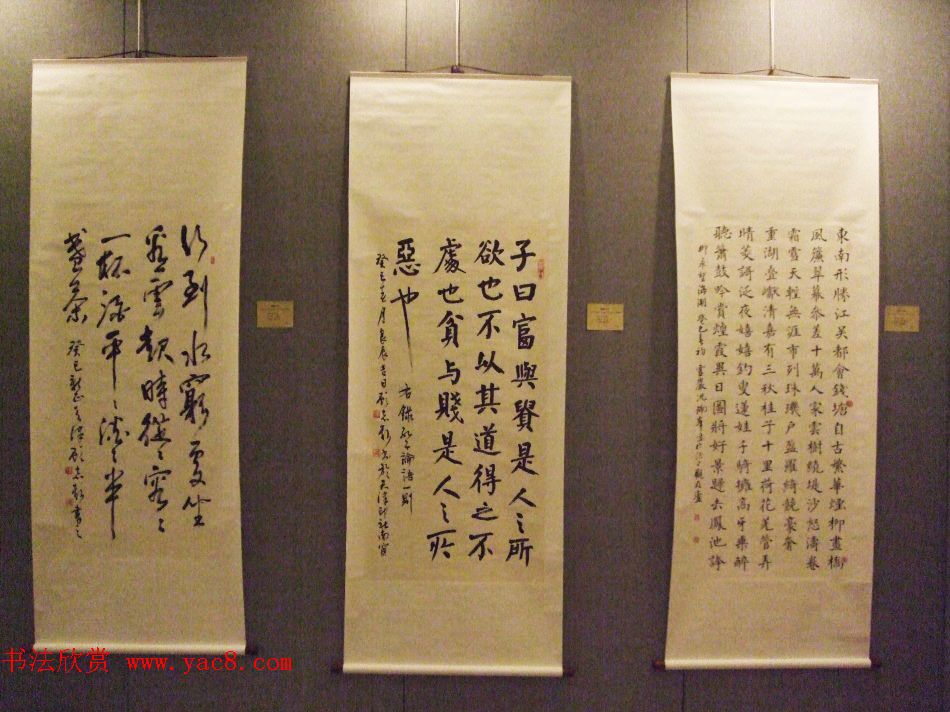 行到水窮處坐
看雲起時從〻容〻
一杯酒平〻淡〻半
盞茶
癸巳
子曰富與貴是人之所
欲也不以其道得之不
處也貧与賤是人之所
惡也
右錄論語一則
癸巳月良辰吉日於天津印社南窗
東南形勝江吳都會錢塘自古繁華煙柳畫橋
風簾翠幕參差十萬人家雲樹繞堤沙怒濤卷
霜雪天塹無涯市列珠璣戶盈羅綺競豪奢
重湖疊巘清嘉有三秋桂子十里荷花羌管弄
晴菱謌泛夜嬉嬉釣叟蓮娃千騎擁高牙乘醉
聽簫鼓吟賞煙霞異日圖將好景歸去鳳池誇
柳永望海潮癸巳
书法欣赏 www.yac8.com